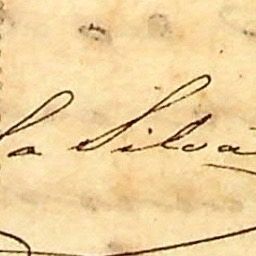 la Silva